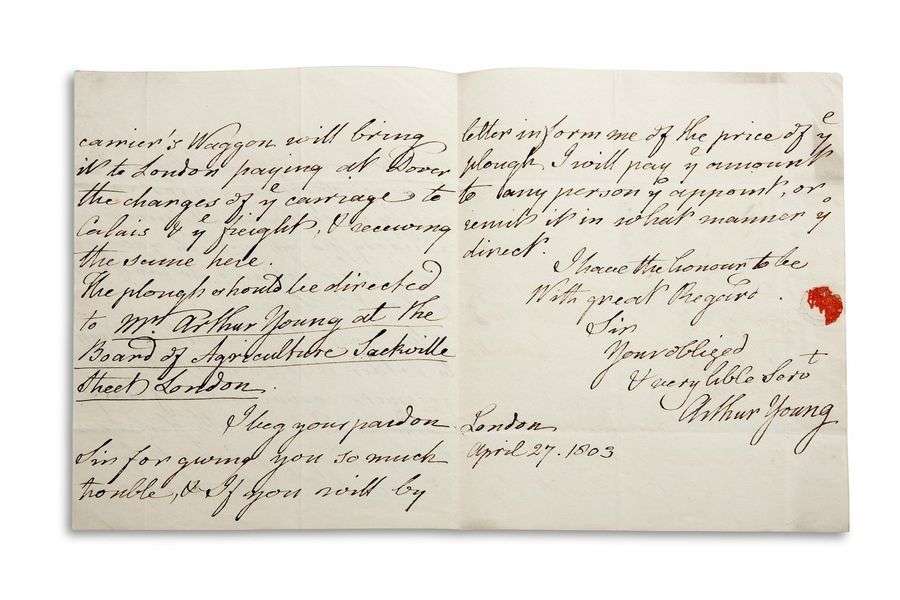 carrier's Waggon will bring
it to London paying at Dover
the charges of yᵉ carriage to
Calais & yᵉ freight, & receiving
the same here.
The plough should be directed
to Mr. Arthur Young at the
Board of Agriculture Sackville
Street London.
I beg your pardon
Sir for giving you so much
trouble, & If you will by
letter inform me of the price of yᵉ
plough I will pay yᵉ amount
to any person yᵘ appoint, or
remit it in what manner yᵘ
direct.
I have the honour to be
With great Regard.
Sir
Your obliged
& very hble Servᵗ
Arthur Young
London
April 27. 1803